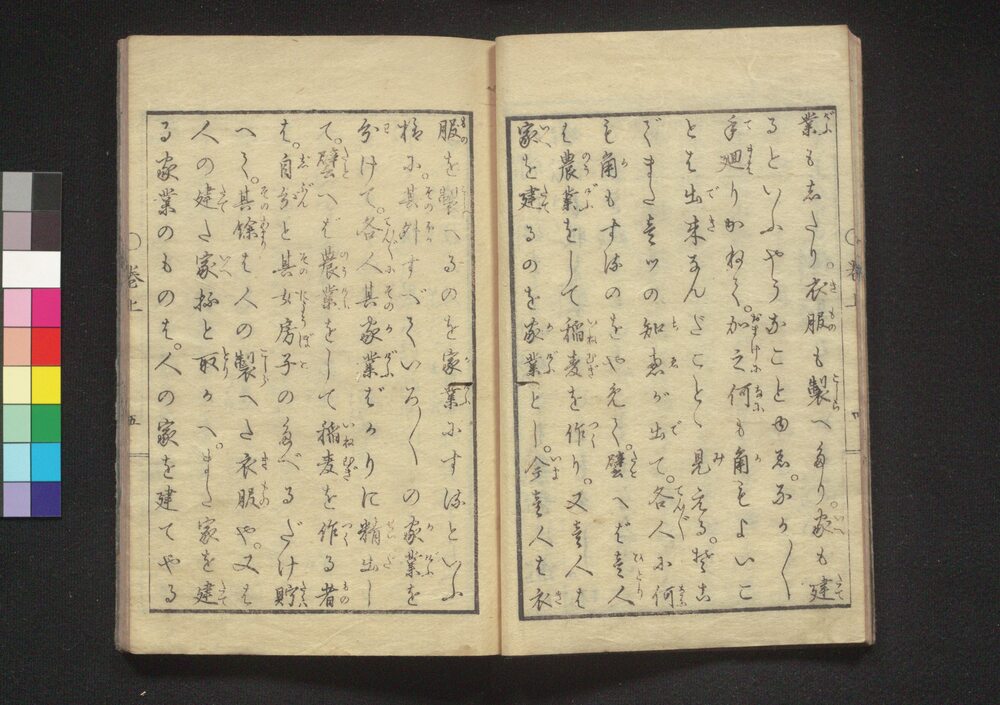 業も志たり。衣服も製へたり。家も建
るといふやうなことゆゑ。なか〱
手廻りかねて。加之何も角もよいこ
とは出来なんだことと見える。そこ
でまた壱ツの知恵が出て。各人に何
も角もするのをやめて。譬へば壱人
は農業をして稲麦を作り。又壱人は
家を建るのを家業とし。今壱人は衣
服を製へるのを家業にするといふ
様に。其外すべていろ〱の家業を
分けて。各人其家業ばかりに精出し
て。譬へば農業をして稲麦を作る者
は。自分と其女房子の食べるだけ貯
へて。其余は人の製へた衣服や。又は
人の建た家抔と取かへ。また家を建
る家業のものは。人の家を建てやる
巻上
五